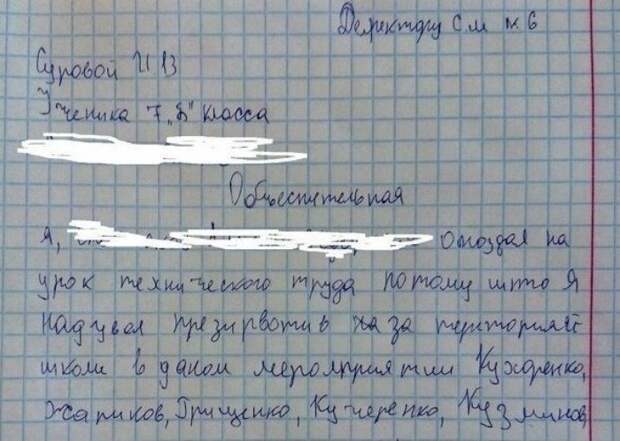 Деректору с.м № 6
Суровой И В
Ученика 7 „Б" класса
Объеснительная
Я, опоздал на
урок технического труда потому што я
надувал презирвотив за територияй
школи в даном мероприятии Кухоренко,
Жариков, Грищенко, Кучеренко, Кузминов